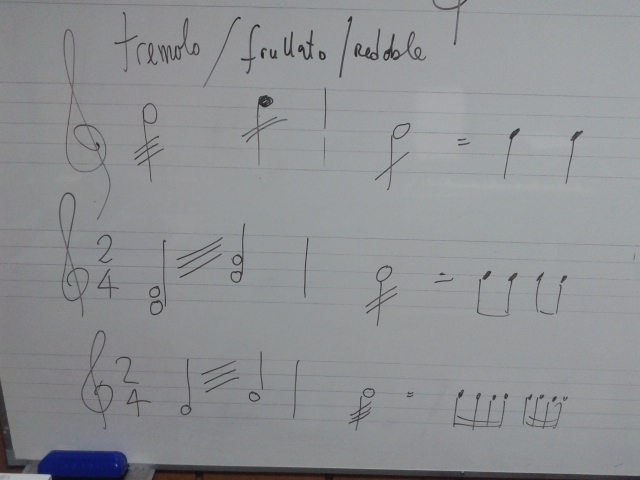 tremolo / frullato / redoble
=
2
4
=
2
4
=